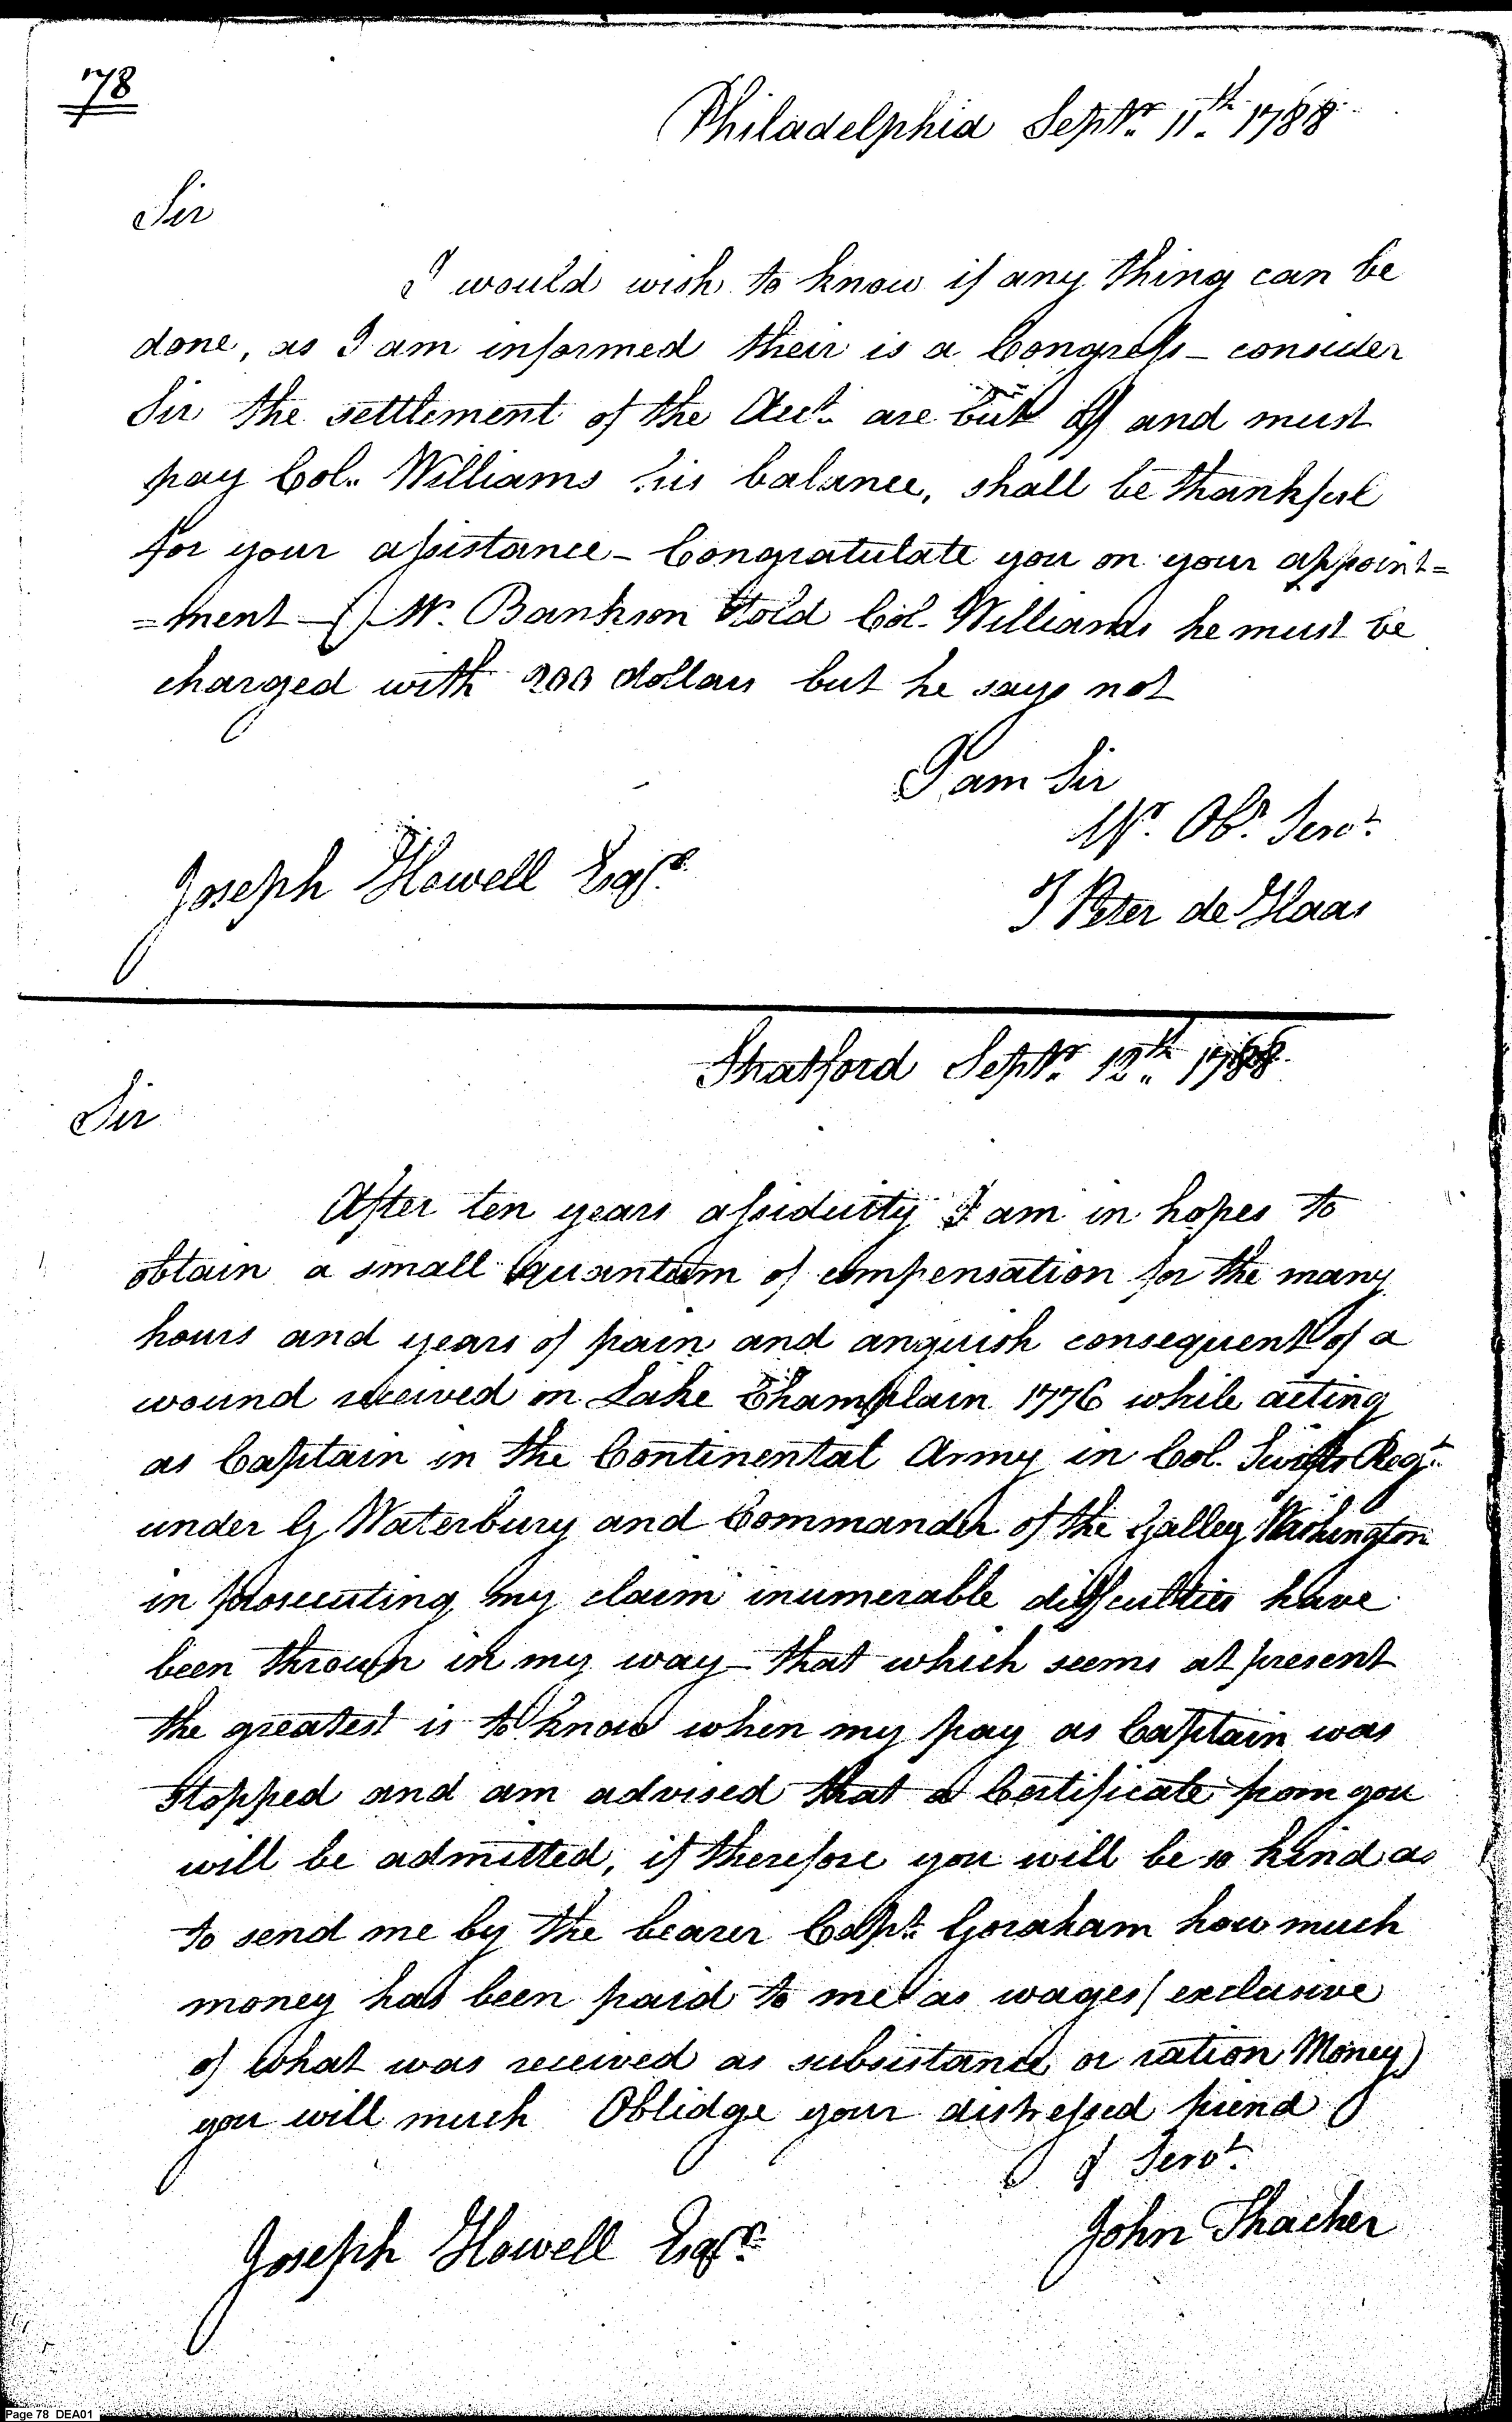 78
Philadelphia Septr. 11th. 1788
Sir
I would wish to know if any thing can be
done, as I am informed their is a Congress - consider
Sir the settlement of the Acct. are but and must
pay Col. Williams his balance, shall be thankful
for your assistance - Congratulate you on your appoint=
=ment - Mr. Bankson told Col. Williams he must be
charged with 200 dollars but he says not
I am Sir
Yr. Obt. Servt.
J Peter de Haas
Joseph Howell Esqr.
Stratford Septr. 12th. 1788
Sir
After ten years assiduity I am in hopes to
obtain a small quantum of compensation for the many
hours and years of pain and anguish consequent of a
wound received on Lake Champlain 1776 while acting
as Captain in the Continental Army in Col. Swifts Regt.
under G Waterbury and Commander of the Galley Washington
in prosecuting my claim inumerable difficulties have
been thrown in my way - that which seems at present
the greatest is to know when my pay as Captain was
stopped and am advised that a Certificate from you
will be admitted, if therefore you will be so kind as
to send me by the bearer Capt. Goraham how much
money has been paid to me as wages (exclusive
of what was received as subsistance or ration Money)
you will much Oblidge your distressed friend
& Servt.
John Thacher
Joseph Howell Esqr.
Page 78 DEA01